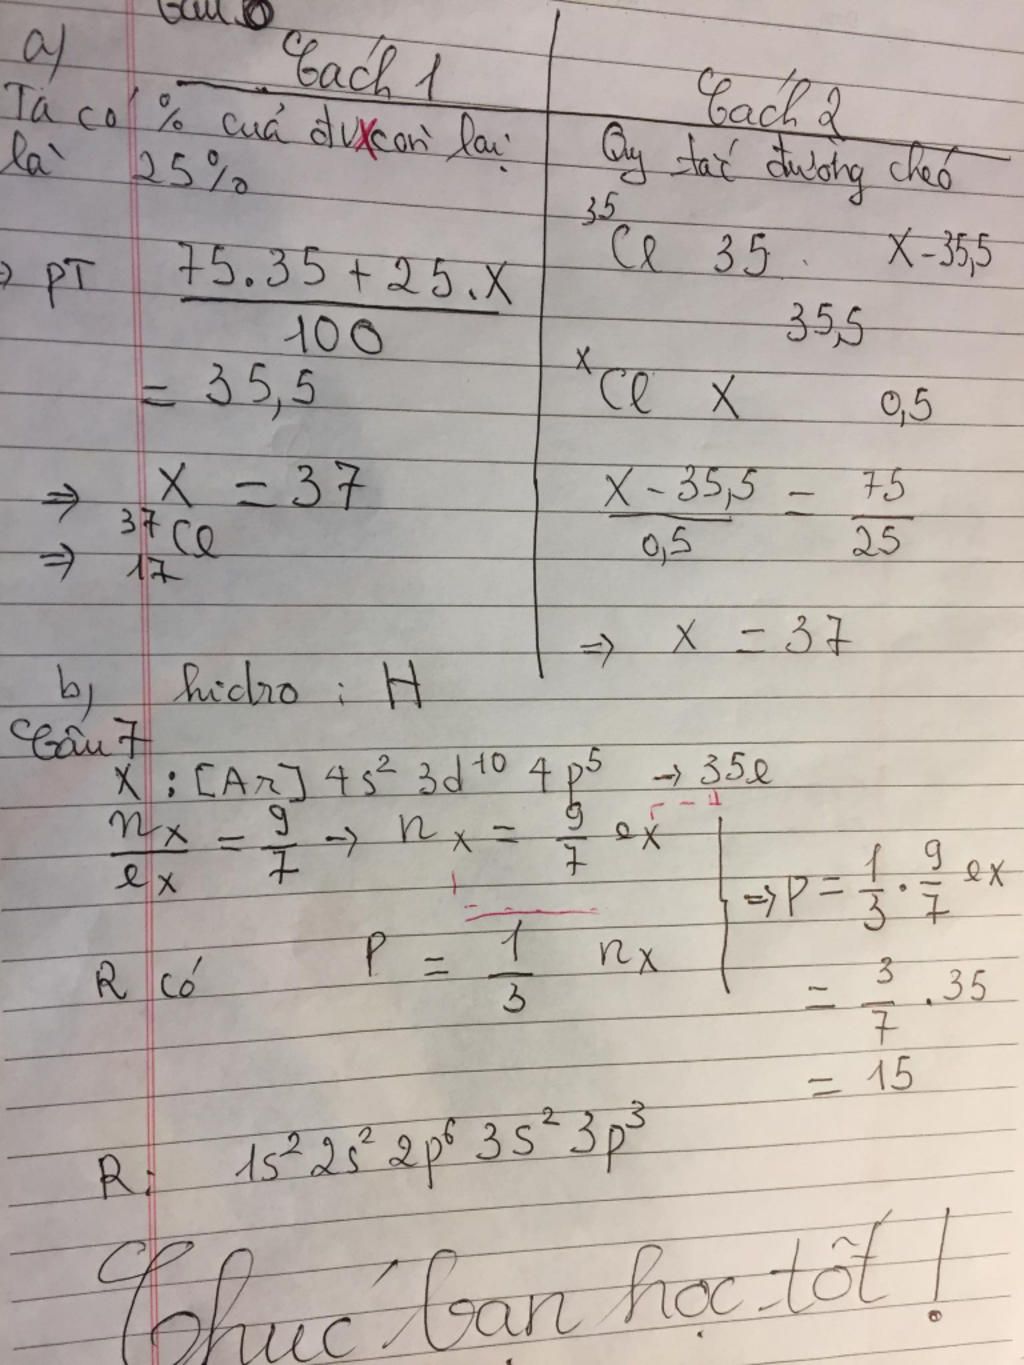 Câu 6
a)
Cách 1
Ta có % của đvx còn lại
là 25%
⇒ PT (75.35 + 25.X)/100
= 35,5
⇒ X = 37
⇒ ³⁷₁₇Cl
Cách 2
Quy tắc đường chéo
³⁵Cl 35 X-35,5
35,5
ˣCl X 0,5
(X - 35,5)/0,5 = 75/25
⇒ X = 37
b) hidro : H
Câu 7
X : [Ar] 4s² 3d¹⁰ 4p⁵ → 35e
nx/ex = 9/7 → nx = 9/7 ex
R có P = 1/3 nx
⇒ P = 1/3 . 9/7 ex
= 3/7 . 35
= 15
R: 1s² 2s² 2p⁶ 3s² 3p³
Chúc bạn học tốt !